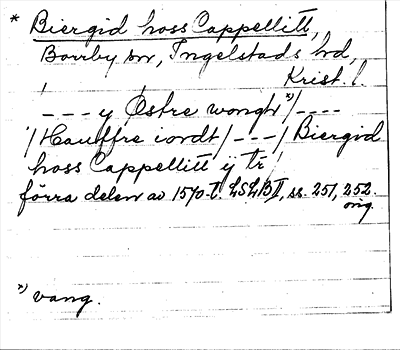 * Biergid hoss Cappellitt,
Borrby sn, Ingelstads hd,
Krist. l.
- - - y Østre wongh x) / - - - -
/ Hauffre iordt / - - - / Biergid
hoss Cappellitt ÿ tr /
förra delen av 1570-t. LSLB II, ss. 251, 252.
orig.
x) vang.